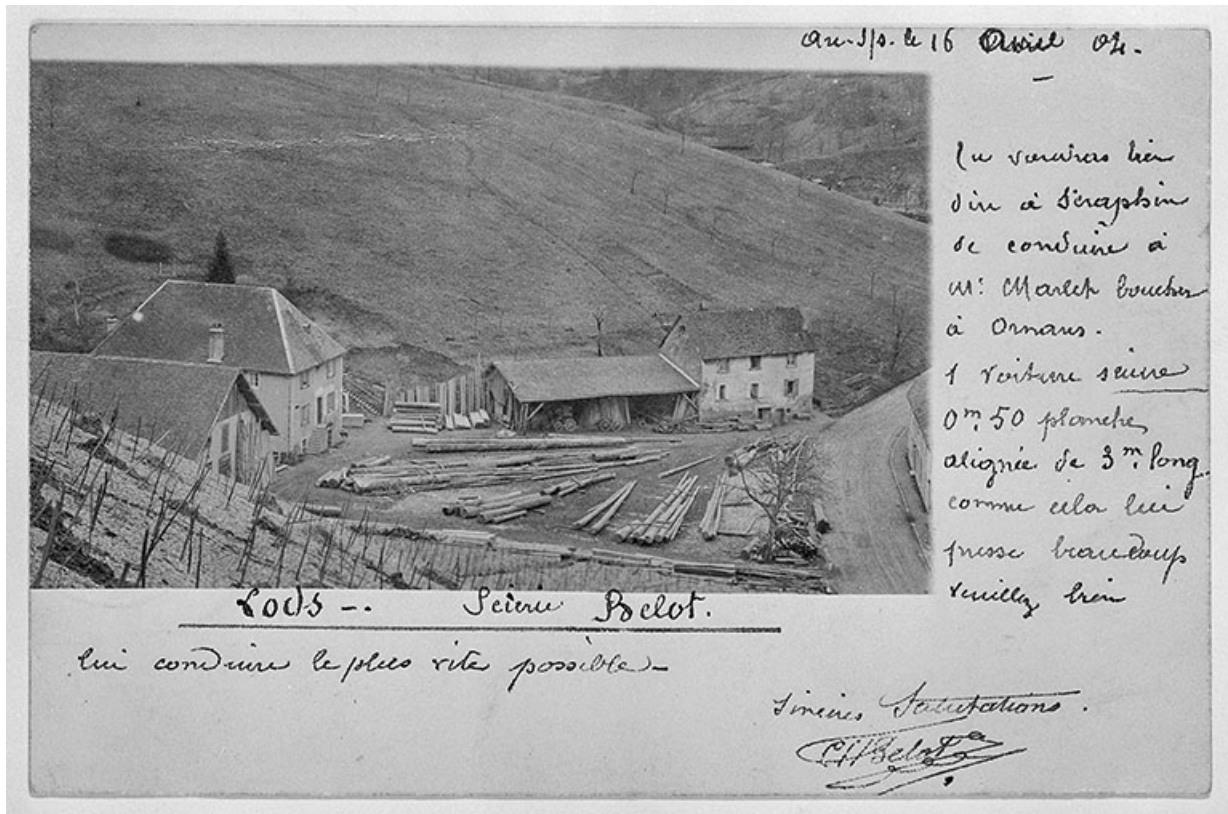 le 16 Avril 04.
Tu voudras bien
dire à Séraphin
de conduire à
Mr. Marlet boucher
à Ornans.
1 voiture sciure
0m,50 planches
alignée de 3m, long
comme cela lui
presse beaucoup
veuillez bien
LODS -. Scierie Belot.
lui conduire le plus vite possible -
Sincères Salutations.
Belot